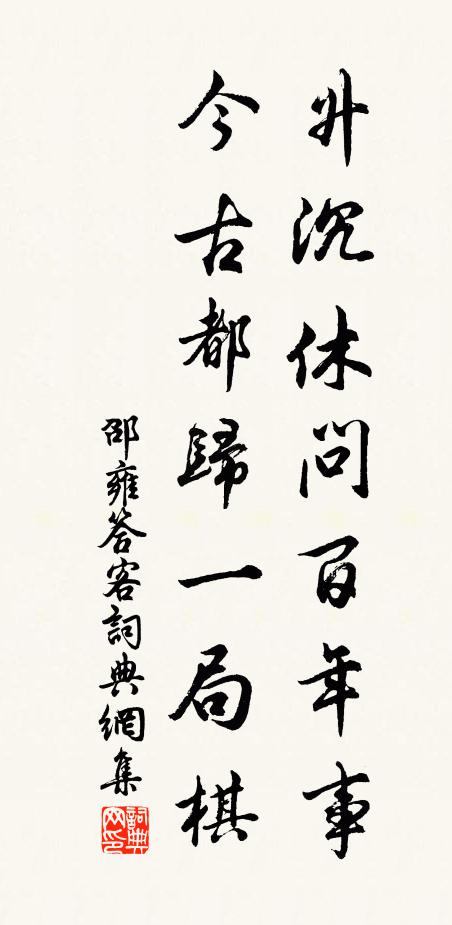 升沉休問百年事
今古都歸一局棋
邵雍答客詞典網集
詞典网印